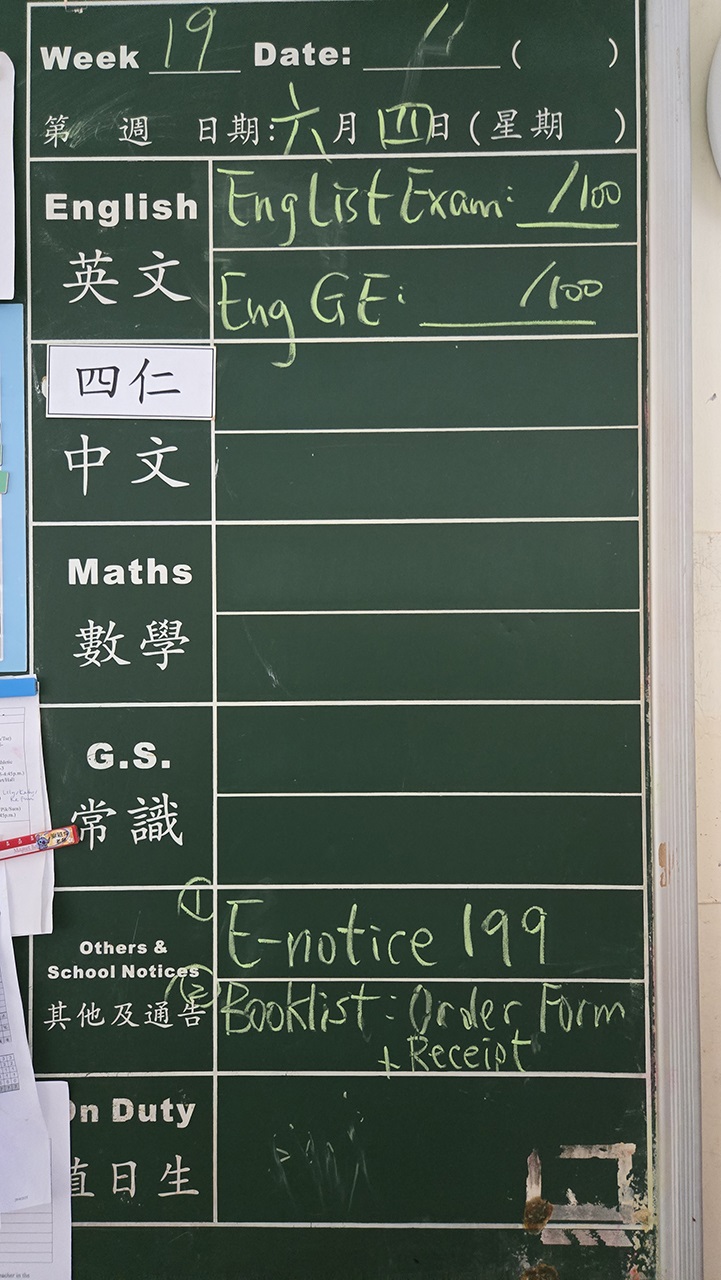 Week 19 Date: / ( )
第 週 日期:六月四日(星期 )
English
英文
EngList Exam: /100
Eng GE: /100
四仁
中文
Maths
數學
G.S.
常識
Others &
School Notices
其他及通告
① E-notice 199
② Booklist: Order Form
+ Receipt
On Duty
值日生